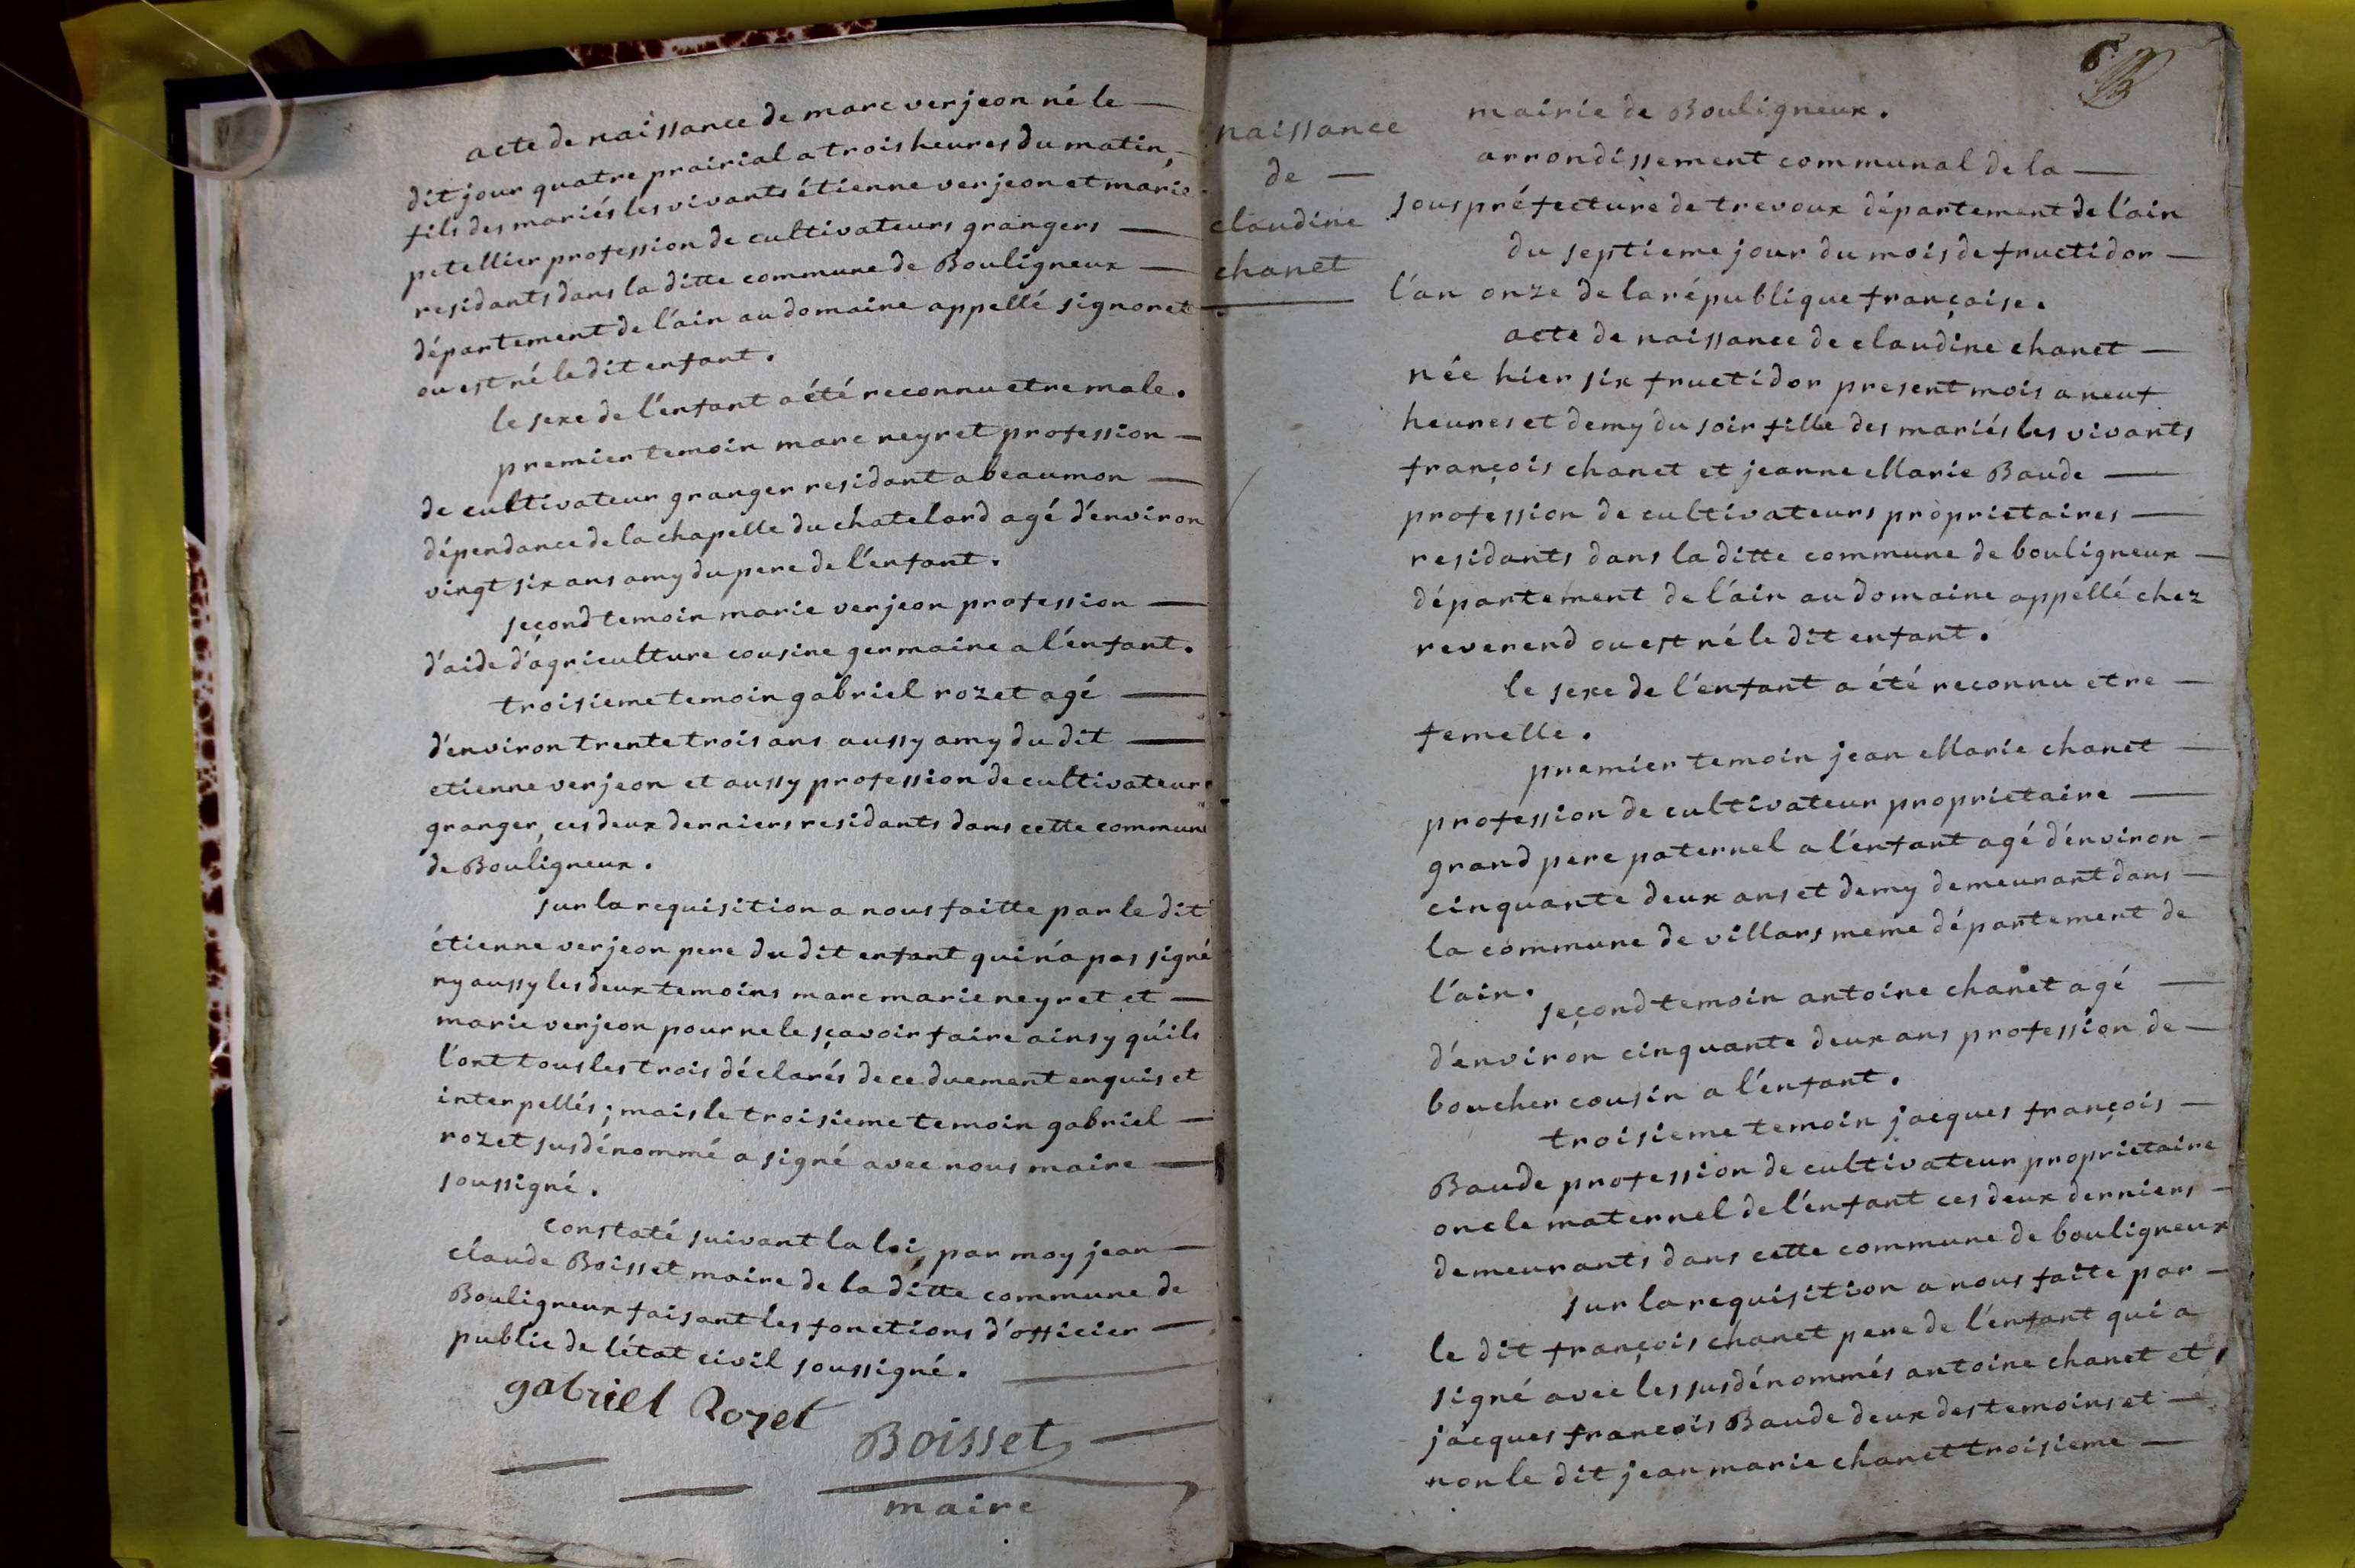 acte de naissance de marc verjeon né le —
dit jour quatre prairial a trois heures du matin,
fils des mariés les vivants étienne verjeon et marie
petellier profession de cultivateurs grangers —
residants dans la ditte commune de Bouligneux —
département de l'ain au domaine appellé signoret
ou est né le dit enfant.
le sexe de l'enfant a été reconnu etre male.
premier temoin marc neyret profession —
de cultivateur granger residant a beaumon —
dépendance de la chapelle du chatelard agé d'environ
vingt six ans amy du pere de l'enfant.
second temoin marie verjeon profession —
d'aide d'agriculture cousine germaine a l'enfant.
troisieme temoin gabriel rozet agé —
d'environ trente trois ans aussy amy du dit —
etienne verjeon et aussy profession de cultivateur
granger, ces deux derniers residants dans cette commune
de Bouligneux.
sur la requisition a nous faitte par le dit
étienne verjeon pere du dit enfant qui n'a pas signé
ny aussy les deux temoins marc marie neyret et —
marie verjeon pour ne le sçavoir faire ainsy qu'ils
l'ont tous les trois déclarés de ce duement enquis et
interpellés; mais le troisieme temoin gabriel —
rozet susdénommé a signé avec nous maire —
soussigné.
constaté suivant la loi, par moy jean —
claude Boisset maire de la ditte commune de
Bouligneux faisant les fonctions d'officier —
public de l'état civil soussigné. —
gabriel Rozet
Boisset —
maire
6
naissance
de —
claudine
chanet
mairie de Bouligneux.
arrondissement communal de la —
souspréfecture de trevoux département de l'ain
du septieme jour du mois de fructidor —
l'an onze de la république française.
acte de naissance de claudine chanet —
née hier six fructidor present mois a neuf
heures et demy du soir fille des mariés les vivants
françois chanet et jeanne Marie Baude —
profession de cultivateurs proprietaires —
residants dans la ditte commune de bouligneux —
département de l'ain au domaine appéllé chez
reverend ou est né le dit enfant.
le sexe de l'enfant a été reconnu etre —
femelle.
premier temoin jean Marie chanet —
profession de cultivateur proprietaire —
grand pere paternel a l'enfant agé d'environ —
cinquante deux ans et demy demeurant dans —
la commune de villars meme département de
l'ain.
second temoin antoine chanet agé —
d'environ cinquante deux ans profession de —
boucher cousin a l'enfant.
troisieme temoin jacques françois —
Baude profession de cultivateur proprietaire
oncle maternel de l'enfant ces deux derniers —
demeurants dans cette commune de bouligneux
sur la requisition a nous faite par —
le dit françois chanet pere de l'enfant qui a
signé avec les susdénommés antoine chanet et
jacques françois Baude deux des temoins et —
non le dit jean marie chanet troisieme —